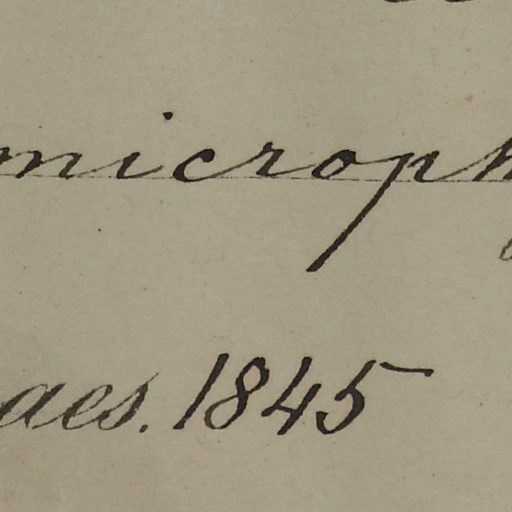 microph
aes. 1845